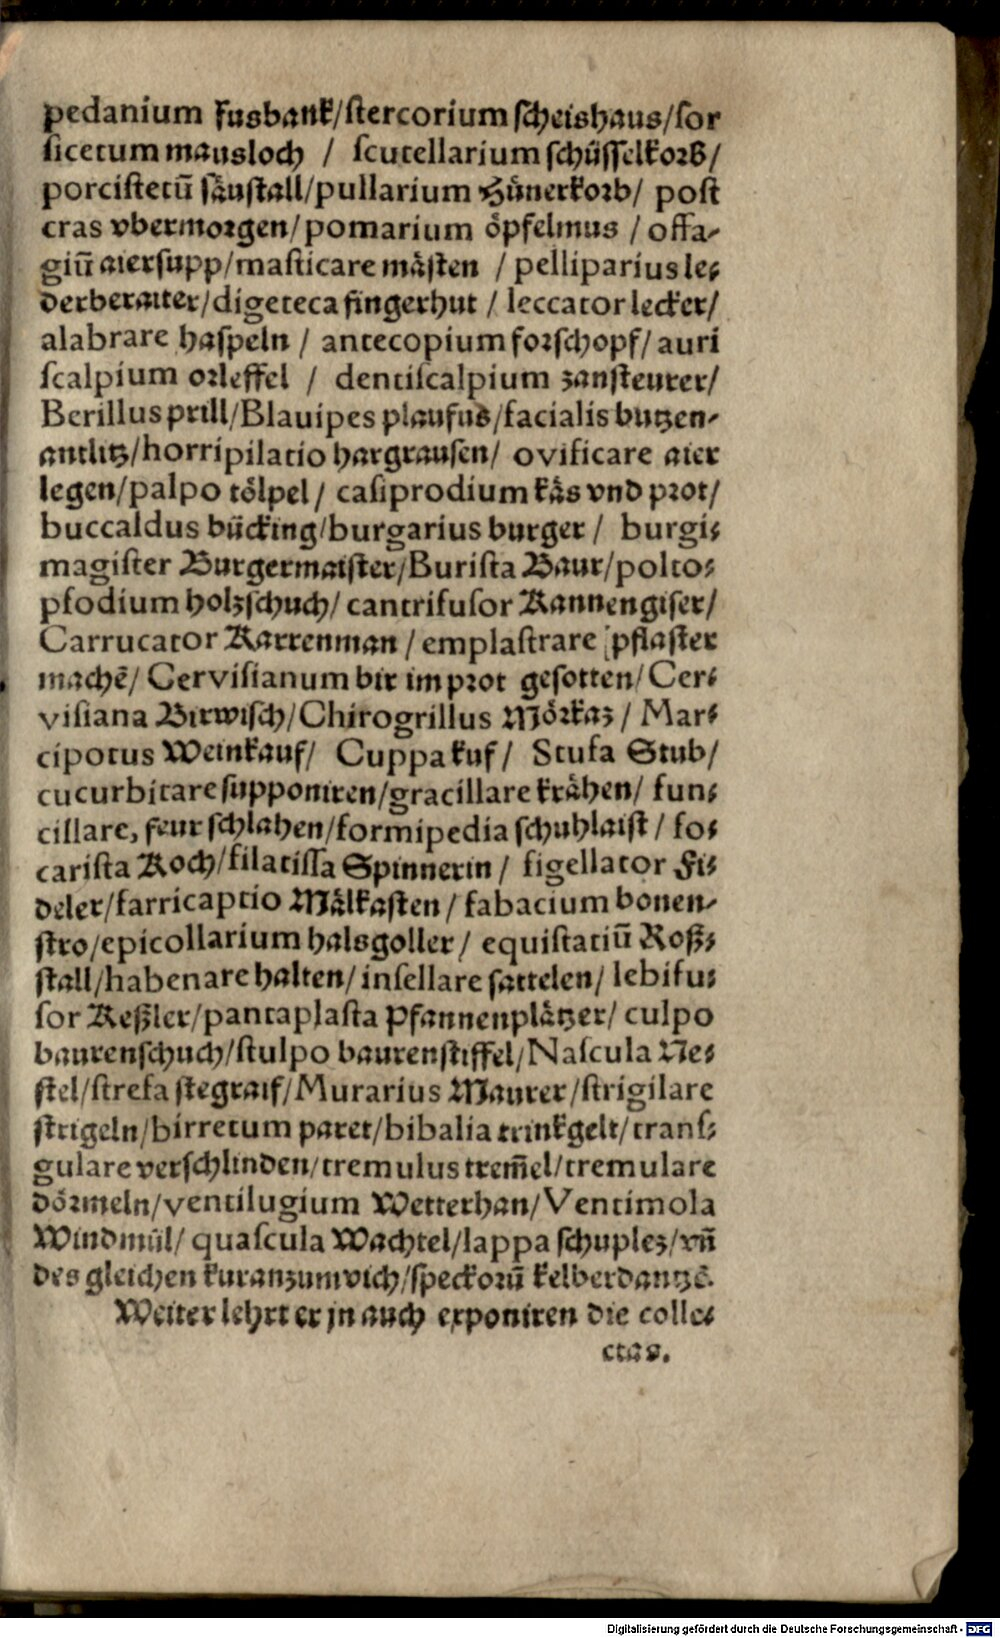 pedanium Fusbank/stercorium scheishaus/sor
sicetum mausloch / scutellarium schüsselkorb/
porcistetū säustall/pullarium Hünerkorb/ post
cras vbermorgen/pomarium öpfelmus / offa-
giū aiersupp/masticare mästen / pelliparius le-
derberaiter/digeteca fingerhut / leccator lecker/
alabrare haspeln / antecopium forschopf/ auri
scalpium orleffel / dentiscalpium zansteurer/
Berillus prill/Blauipes plaufus/facialis butzen-
antlitz/horripilatio hargrausen/ ovificare aier
legen/palpo tölpel/ casiprodium käs vnd prot/
buccaldus bücking/burgarius burger / burgi-
magister Burgermaister/Burista Baur/polto-
pfodium holzschuch/ cantrifusor Kannengiser/
Carrucator Karrenman / emplastrare pflaster
machē/ Cervisianum bir im prot gesotten/ Cer-
visiana Birwisch/Chirogrillus Mörkaz / Mar-
cipotus Weinkauf/ Cuppa kuf / Stufa Stub/
cucurbitare supponiren/gracillare krähen/ fun-
cillare, feur schlahen/formipedia schuhlaist / fo-
carista Koch/filatissa Spinnerin / figellator Fi-
deler/farricaptio Mälkasten / fabacium bonen-
stro/epicollarium halsgoller / equistatiū Roß-
stall/habenare halten/insellare sattelen/ lebifu-
sor Keßler/pantaplasta Pfannenplätzer/ culpo
baurenschuch/stulpo baurenstiffel/Nascula Ne-
stel/strefa stegraif/Murarius Maurer/strigilare
strigeln/birretum paret/bibalia trinkgelt/trans-
gulare verschlinden/tremulus trem̄el/tremulare
dörmeln/ventilugium Wetterhan/Ventimola
Windmül/ quascula Wachtel/lappa schuplez/vn̄
des gleichen kuranzumvich/speckorū kelberdantzē.
Weiter lehrt er jn auch exponiren die colle-
ctas.
Digitalisierung gefördert durch die Deutsche Forschungsgemeinschaft - DFG